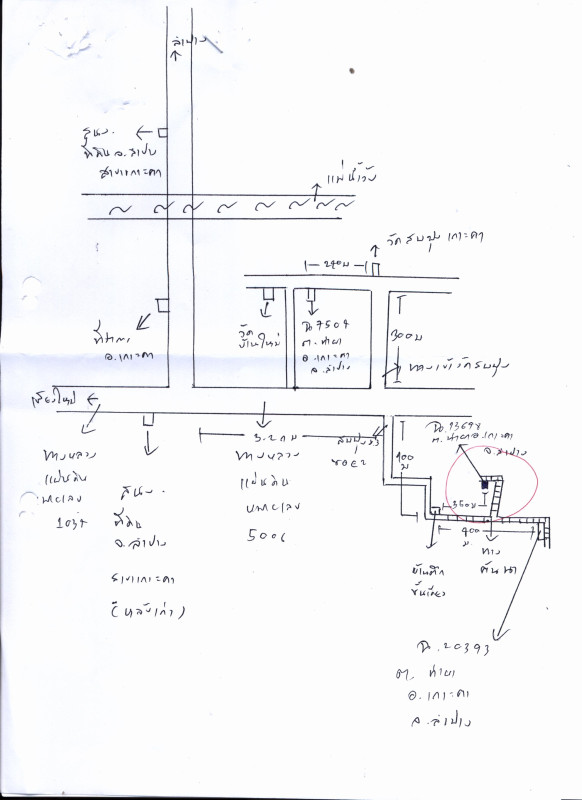 ลำปาง
สนง.
ที่ดิน จ.ลำปาง
สาขาเกาะคา
แม่น้ำวัง
วัดสบปุง เกาะคา
240ม
วัด
บ้านใหม่
ฉ.7504
ต.ท่าผา
อ.เกาะคา
จ.ลำปาง
300ม
ที่ว่าการ
อ.เกาะคา
เชียงใหม่
3.2 กม
ซอย 2
100
ม
ฉ.13698
จ.ลำปาง
350ม
400
ม.
ทาง
คันนา
ทางหลวง
แผ่นดิน
หมายเลข
1034
สนง.
ที่ดิน
จ.ลำปาง
สาขาเกาะคา
(หลังเก่า)
ทางหลวง
แผ่นดิน
หมายเลข
บ้านตึก
ชั้นเดียว
ฉ.20393
ต. ท่าผา
อ.เกาะคา
จ.ลำปาง